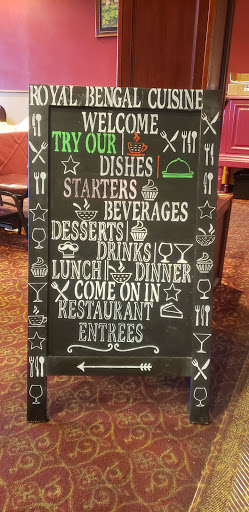 ROYAL BENGAL CUISINE
WELCOME
TRY OUR
DISHES
STARTERS
BEVERAGES
DESSERTS
DRINKS
LUNCH DINNER
COME ON IN
RESTAURANT
ENTREES